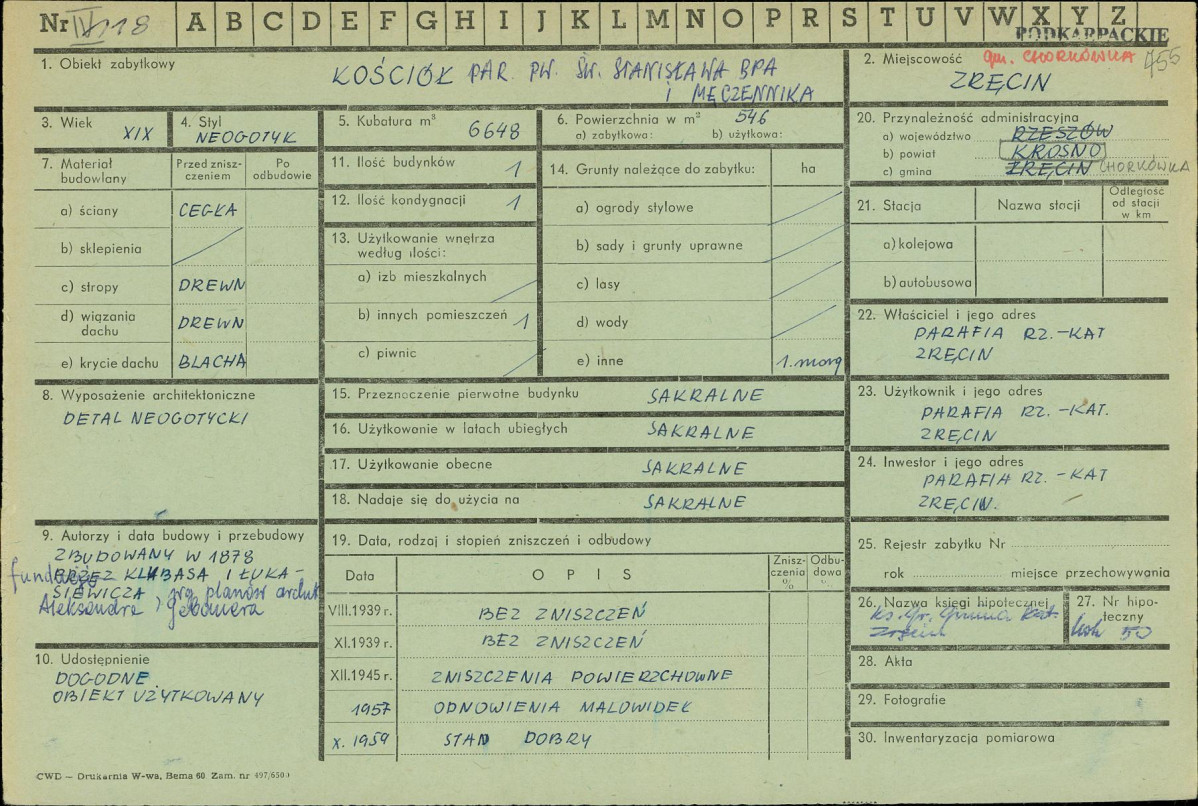 Nr IV/118 A B C D E F G H I J K L M N O P R S T U V W X Y Z
PODKARPACKIE
1. Obiekt zabytkowy
KOŚCIÓŁ PAR. PW. ŚW. STANISŁAWA BPA
I MĘCZENNIKA
2. Miejscowość gm. CHORKÓWKA 755
ZRĘCIN
3. Wiek XIX
4. Styl
NEOGOTYK
5. Kubatura m³ 6648
6. Powierzchnia w m² 546
a) zabytkowa: b) użytkowa:
20. Przynależność administracyjna
a) województwo RZESZÓW
b) powiat KROSNO
c) gmina ZRĘCIN CHORKÓWKA
7. Materiał budowlany
Przed zniszczeniem
Po odbudowie
a) ściany CEGŁA
b) sklepienia
c) stropy DREWN
d) wiązania dachu DREWN
e) krycie dachu BLACHA
11. Ilość budynków 1
12. Ilość kondygnacji 1
13. Użytkowanie wnętrza
według ilości:
a) izb mieszkalnych
b) innych pomieszczeń 1
c) piwnic
14. Grunty należące do zabytku: ha
a) ogrody stylowe
b) sady i grunty uprawne
c) lasy
d) wody
e) inne 1. morg
21. Stacja
Nazwa stacji
Odległość
od stacji
w km
a) kolejowa
b) autobusowa
22. Właściciel i jego adres
PARAFIA RZ.-KAT
ZRĘCIN
8. Wyposażenie architektoniczne
DETAL NEOGOTYCKI
15. Przeznaczenie pierwotne budynku SAKRALNE
16. Użytkowanie w latach ubiegłych SAKRALNE
17. Użytkowanie obecne SAKRALNE
18. Nadaje się do użycia na SAKRALNE
23. Użytkownik i jego adres
PARAFIA RZ.-KAT.
ZRĘCIN
24. Inwestor i jego adres
PARAFIA RZ.-KAT
ZRĘCIN.
9. Autorzy i data budowy i przebudowy
ZBUDOWANY W 1878
PRZEZ KLOBASA I ŁUKA-
SIEWICZA, wg planów archit
Aleksandra Gebauera
10. Udostępnienie
DOGODNE
OBIEKT UŻYTKOWANY
19. Data, rodzaj i stopień zniszczeń i odbudowy
Data
OPIS
Zniszczenia %
Odbudowa %
VIII.1939 r. BEZ ZNISZCZEŃ
XI.1939 r. BEZ ZNISZCZEŃ
XII.1945 r. ZNISZCZENIA POWIERZCHOWNE
1957 ODNOWIENIA MALOWIDEŁ
X. 1959 STAN DOBRY
25. Rejestr zabytku Nr
rok miejsce przechowywania
26. Nazwa księgi hipotecznej
27. Nr hipoteczny
28. Akta
29. Fotografie
30. Inwentaryzacja pomiarowa
CWD — Drukarnia W-wa, Bema 60 Zam. nr 497/650